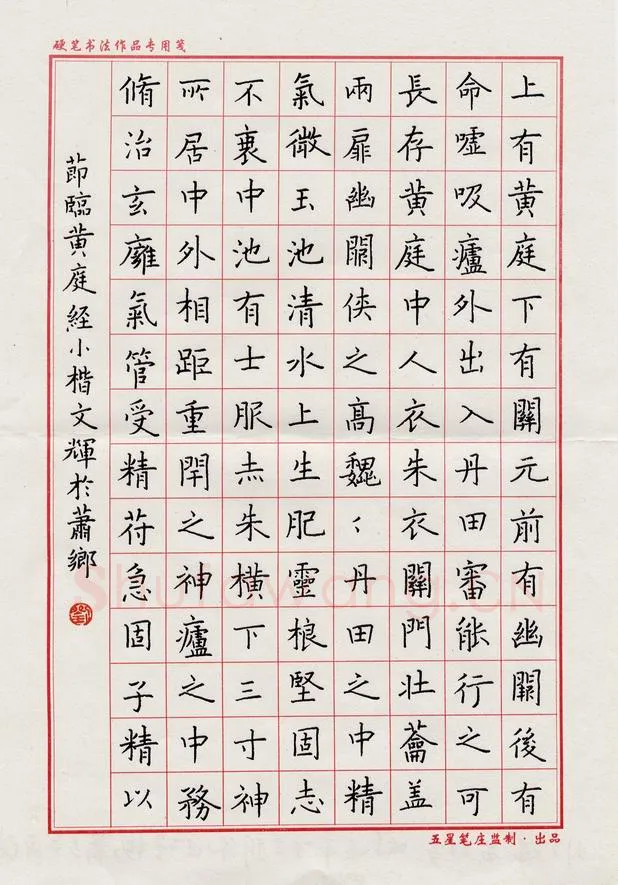 硬笔书法作品专用笺
上有黄庭下有關元前有幽闕後有
命噓吸廬外出入丹田審能行之可
長存黄庭中人衣朱衣關門壯蘥盖
兩扉幽闕俠之高魏〻丹田之中精
氣微玉池清水上生肥靈根堅固志
不衰中池有士服赤朱橫下三寸神
所居中外相距重閇之神廬之中務
脩治玄廱氣管受精苻急固子精以
莭臨黄庭経小楷文輝於蕭鄉
Shufawang.CN
五星笔庄监制·出品